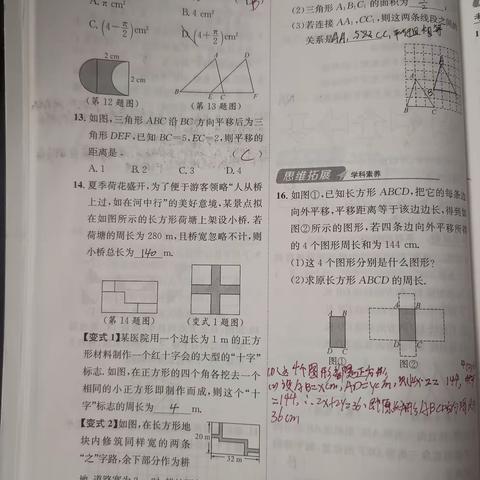 A. π cm²
B. 4 cm²
C. (4－π/2)cm²
D. (4＋π/2)cm²
2 cm
2 cm
A
D
B
E
C
F
(第 12 题图)
(第 13 题图)
13. 如图,三角形 ABC 沿 BC 方向平移后为三
角形 DEF,已知 BC=5,EC=2,则平移的
距离是
( C )
A. 1
B. 2
C. 3
D. 4
14. 夏季荷花盛开,为了便于游客领略“人从桥
上过,如在河中行”的美好意境,某景点拟
在如图所示的长方形荷塘上架设小桥. 若
荷塘的周长为 280 m,且桥宽忽略不计,则
小桥总长为 140 m.
(第 14 题图)
(变式 1 题图)
【变式 1】某医院用一个边长为 1 m 的正方
形材料制作一个红十字会的大型的“十字”
标志. 如图,在正方形的四个角各挖去一个
相同的小正方形即制作而成,则这个“十
字”标志的周长为 4 m.
【变式 2】如图,在长方形地
块内修筑同样宽的两条
“之”字路,余下部分作为耕
20 m
32 m
(2)三角形 A₁B₁C₁ 的面积为
(3)若连接 AA₁,CC₁,则这两条线段之间的
关系是
思维拓展
学科素养
16. 如图①,已知长方形 ABCD,把它的每条边
向外平移,平移距离等于该边边长,得到如
图②所示的图形,若四条边向外平移所得
的 4 个图形周长和为 144 cm.
(1)这 4 个图形分别是什么图形?
(2)求原长方形 ABCD 的周长.
A
B
D
C
图①
A
B
D
C
图②
(1) 这4个图形都是正方形
=144, ∴2x+2y=36,
36cm